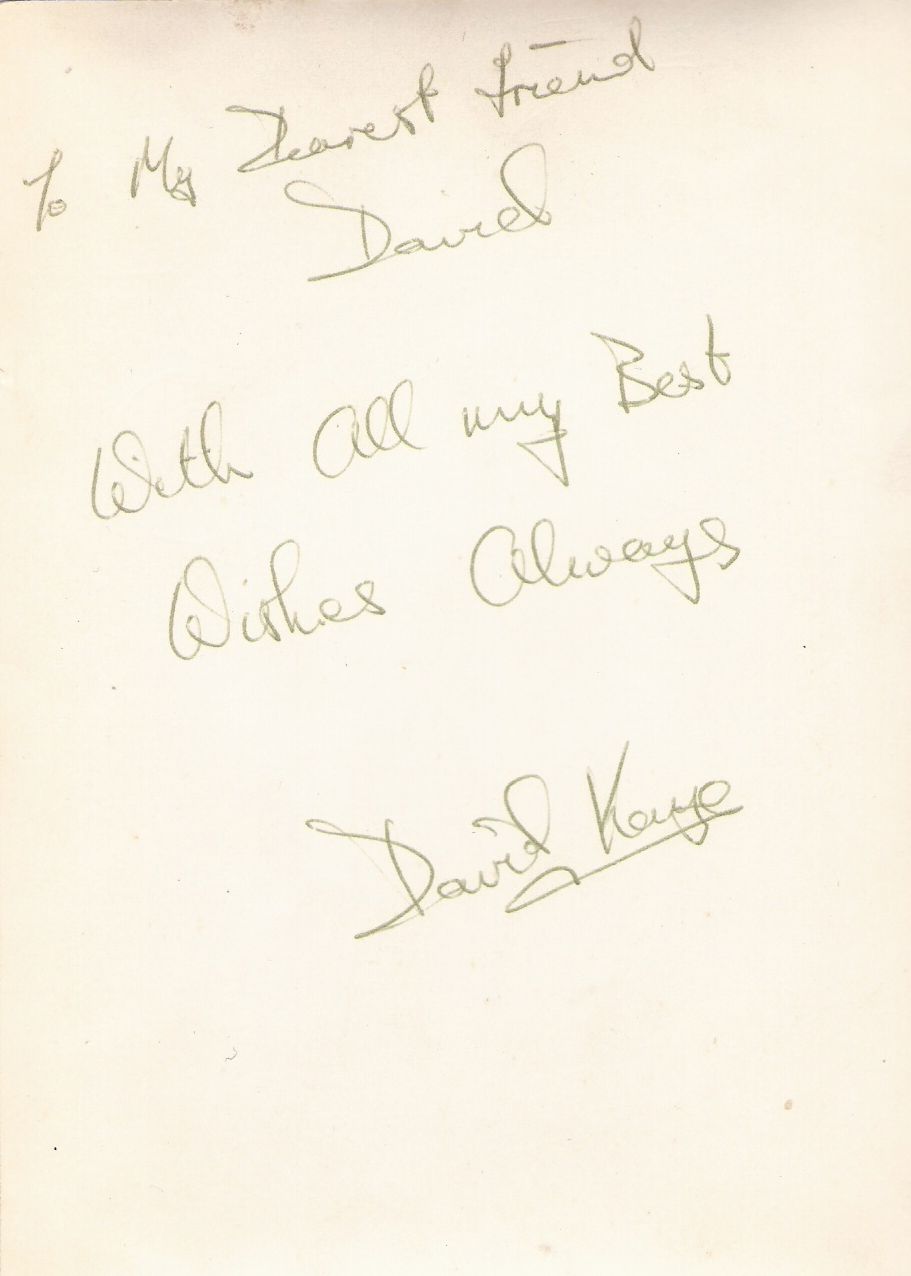 To My Dearest friend
David
With All my Best
Wishes Always
David Kaye